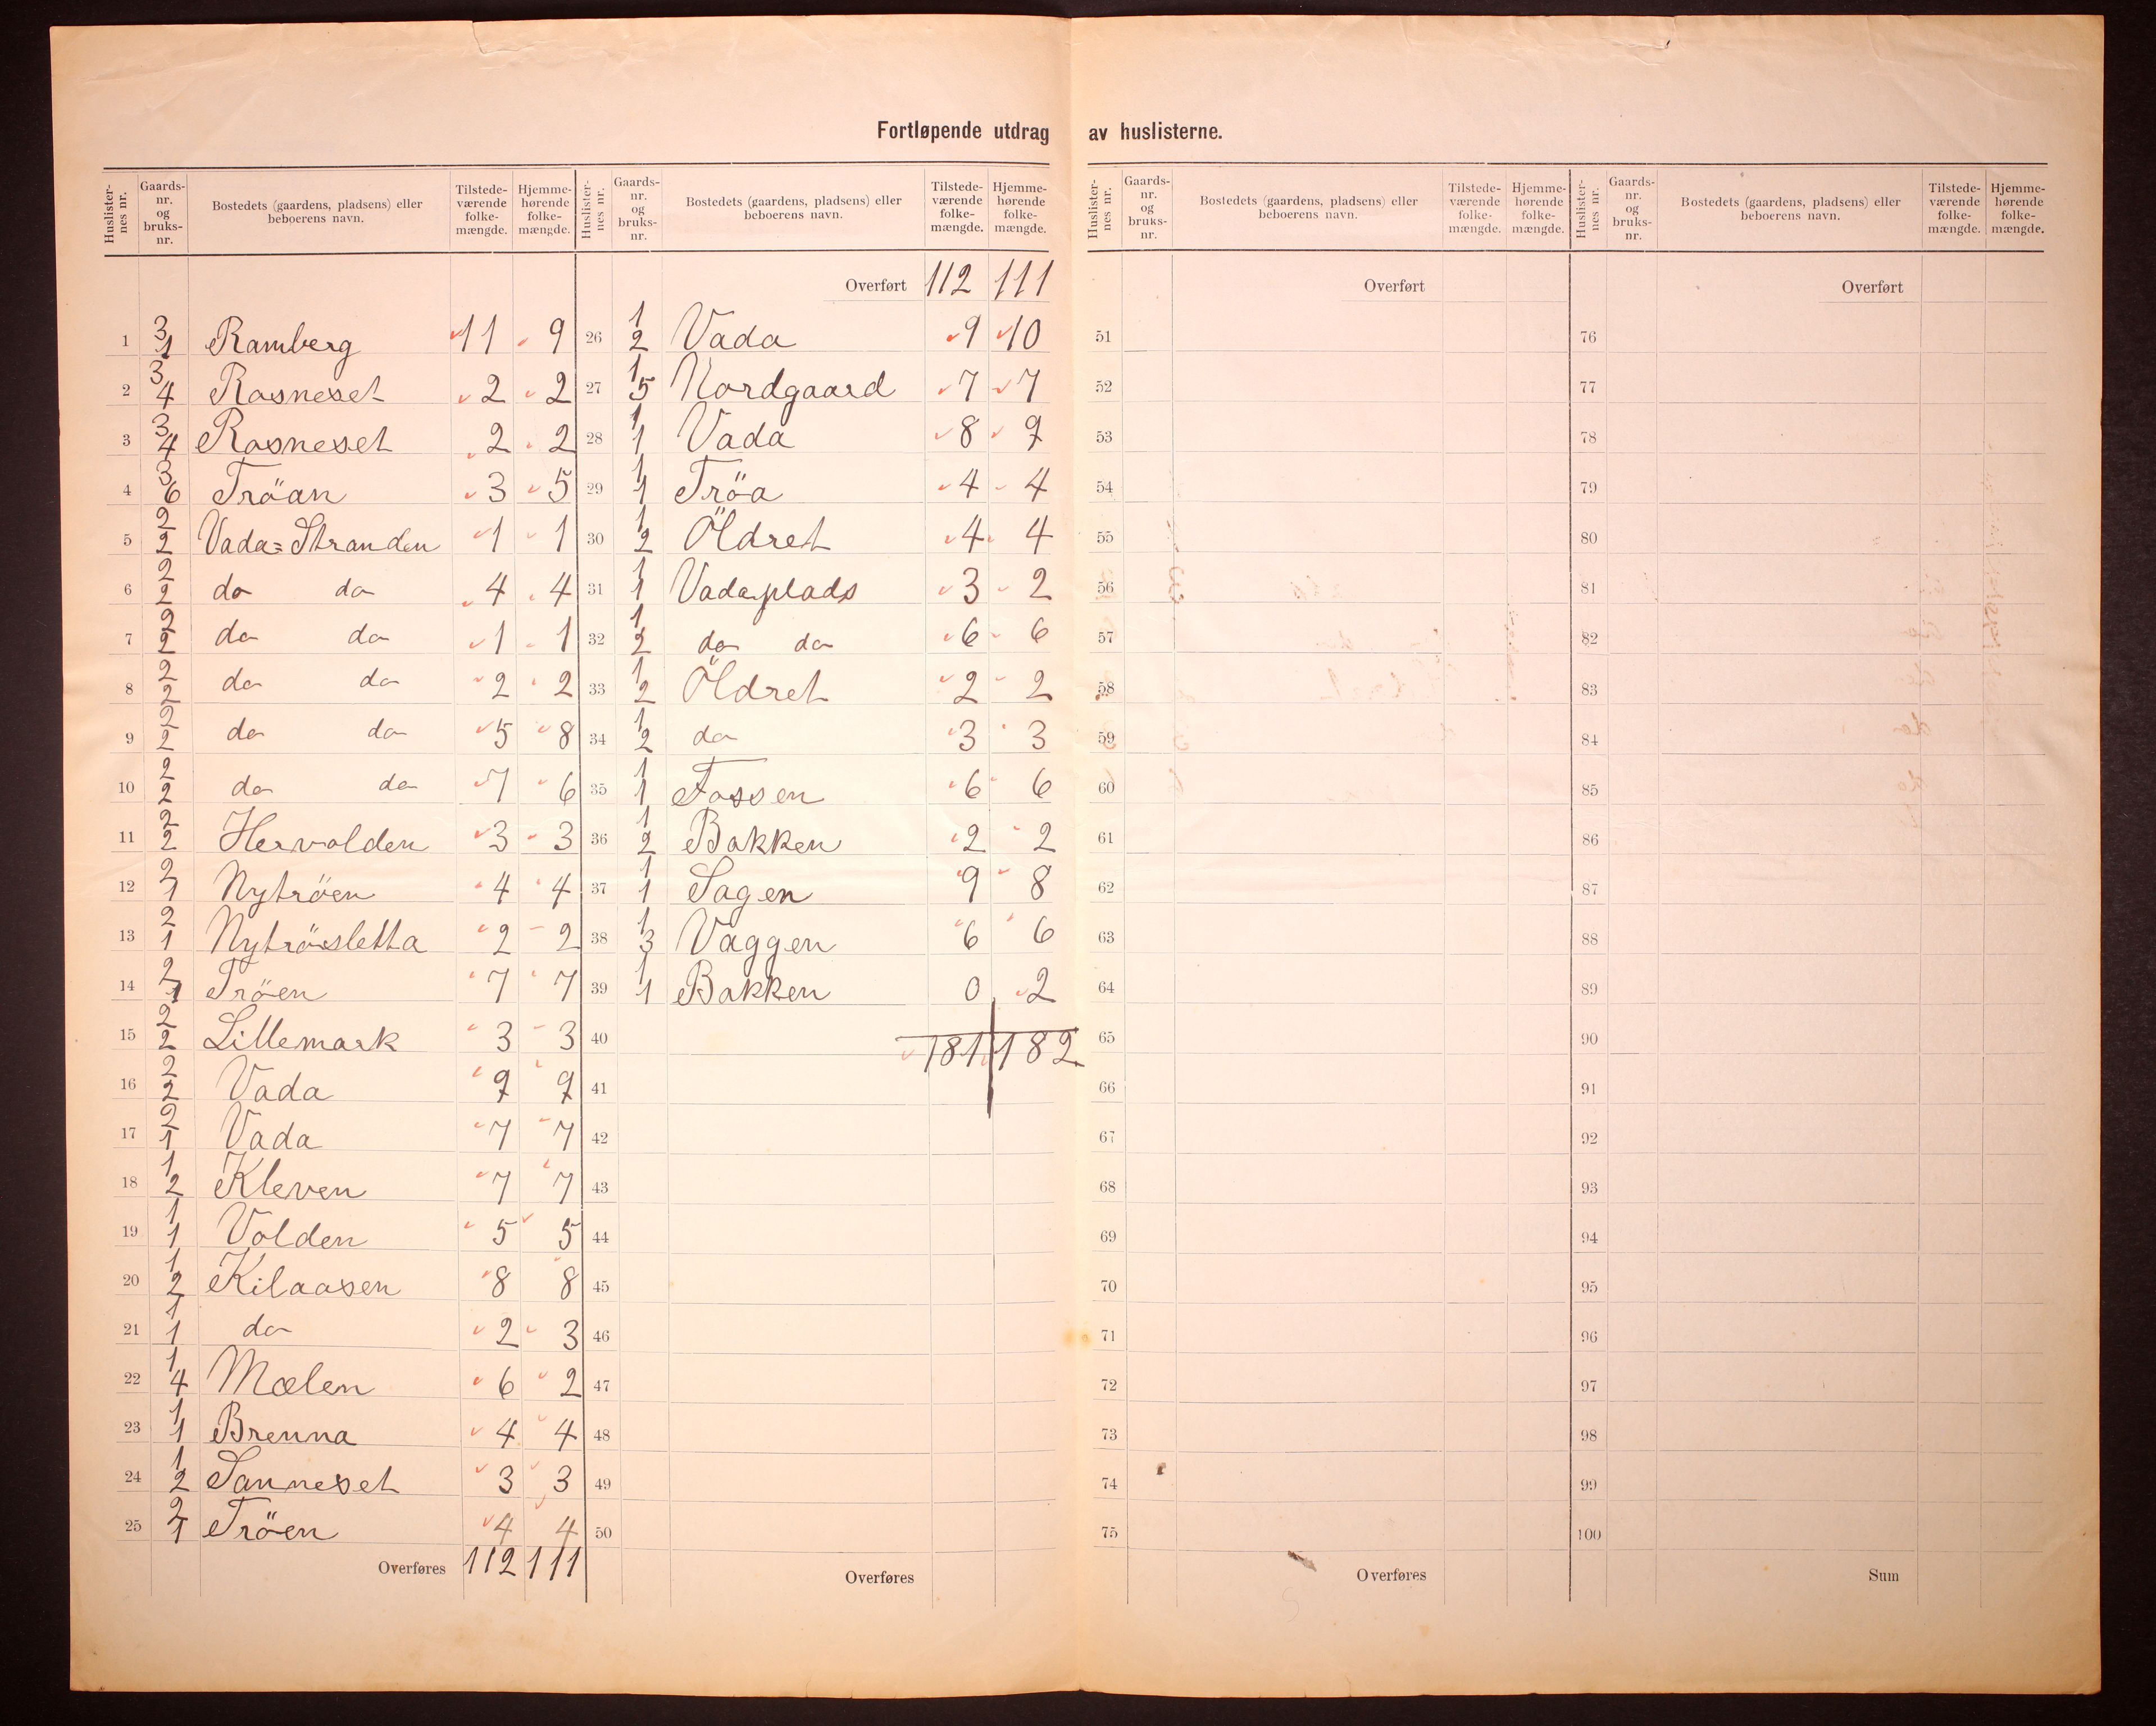 Fortløpende utdrag av huslisterne.
Huslisternes nr. | Gaardsnr. og bruksnr. | Bostedets (gaardens, pladsens) eller beboerens navn. | Tilstedeværende folkemængde. | Hjemmehørende folkemængde.
1 3/1 Ramberg 11 9
2 3/4 Rosneset 2 2
3 3/4 Rosneset 2 2
4 3/6 Tröan 3 5
5 2/2 Vada=Stranden 1 1
6 2/2 do do 4 4
7 2/2 do do 1 1
8 2/2 do do 2 2
9 2/2 do do 5 8
10 2/2 do do 7 6
11 2/2 Hervolden 3 3
12 2/1 Nytröen 4 4
13 2/1 Nytrösletta 2 2
14 2/1 Tröen 7 7
15 2/2 Lillemark 3 3
16 2/2 Vada 9 9
17 2/1 Vada 7 7
18 1/2 Kleven 7 7
19 1/1 Volden 5 5
20 1/2 Kilaasen 8 8
21 1/1 do 2 3
22 1/4 Mælen 6 2
23 1/1 Brenna 4 4
24 1/2 Sanneset 3 3
25 2/1 Tröen 4 4
Overføres 112 111
Huslisternes nr. | Gaardsnr. og bruksnr. | Bostedets (gaardens, pladsens) eller beboerens navn. | Tilstedeværende folkemængde. | Hjemmehørende folkemængde.
Overført 112 111
26 1/2 Vada 9 10
27 1/5 Nordgaard 7 7
28 1/1 Vada 8 9
29 1/1 Tröa 4 4
30 1/2 Öldret 4 4
31 1/1 Vadaplads 3 2
32 1/2 do do 6 6
33 1/2 Öldret 2 2
34 1/2 do 3 3
35 1/1 Fossen 6 6
36 1/2 Bakken 2 2
37 1/1 Sagen 9 8
38 1/3 Vaggen 6 6
39 1/1 Bakken 0 2
40 181 182
41
42
43
44
45
46
47
48
49
50
Overføres
Huslisternes nr. | Gaardsnr. og bruksnr. | Bostedets (gaardens, pladsens) eller beboerens navn. | Tilstedeværende folkemængde. | Hjemmehørende folkemængde.
Overført
51
52
53
54
55
56
57
58
59
60
61
62
63
64
65
66
67
68
69
70
71
72
73
74
75
Overføres
Huslisternes nr. | Gaardsnr. og bruksnr. | Bostedets (gaardens, pladsens) eller beboerens navn. | Tilstedeværende folkemængde. | Hjemmehørende folkemængde.
Overført
76
77
78
79
80
81
82
83
84
85
86
87
88
89
90
91
92
93
94
95
96
97
98
99
100
Sum